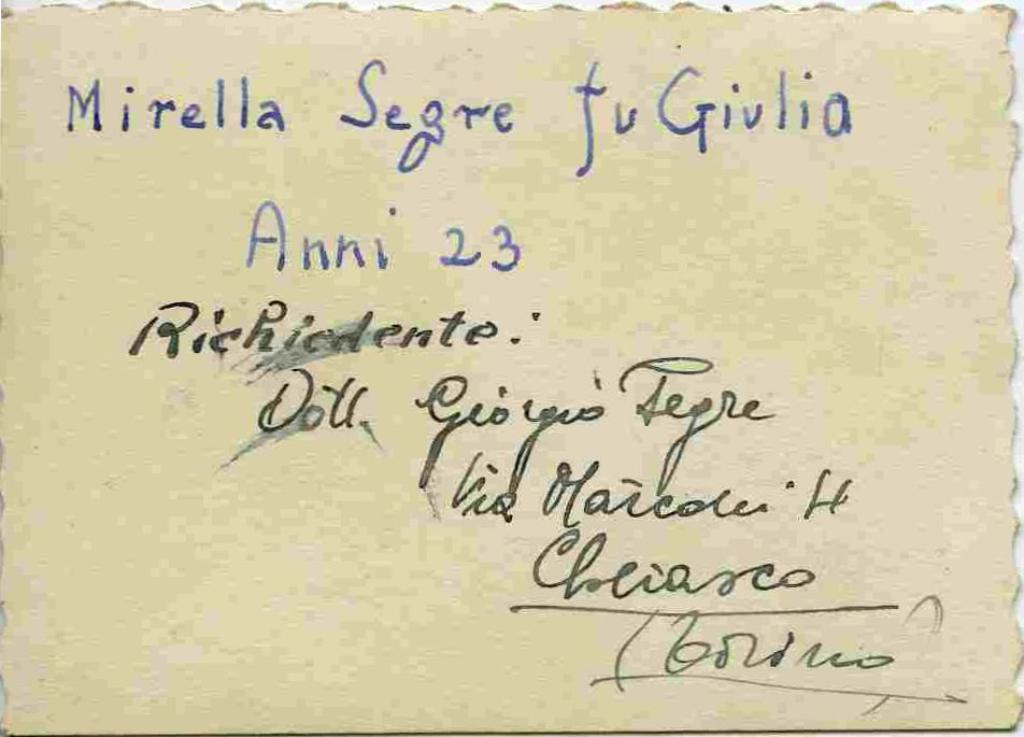 Mirella Segre fu Giulia
Anni 23
Richiedente:
Dott. Giorgio Segre
Via Marconi 4
Chivasso
(Torino)